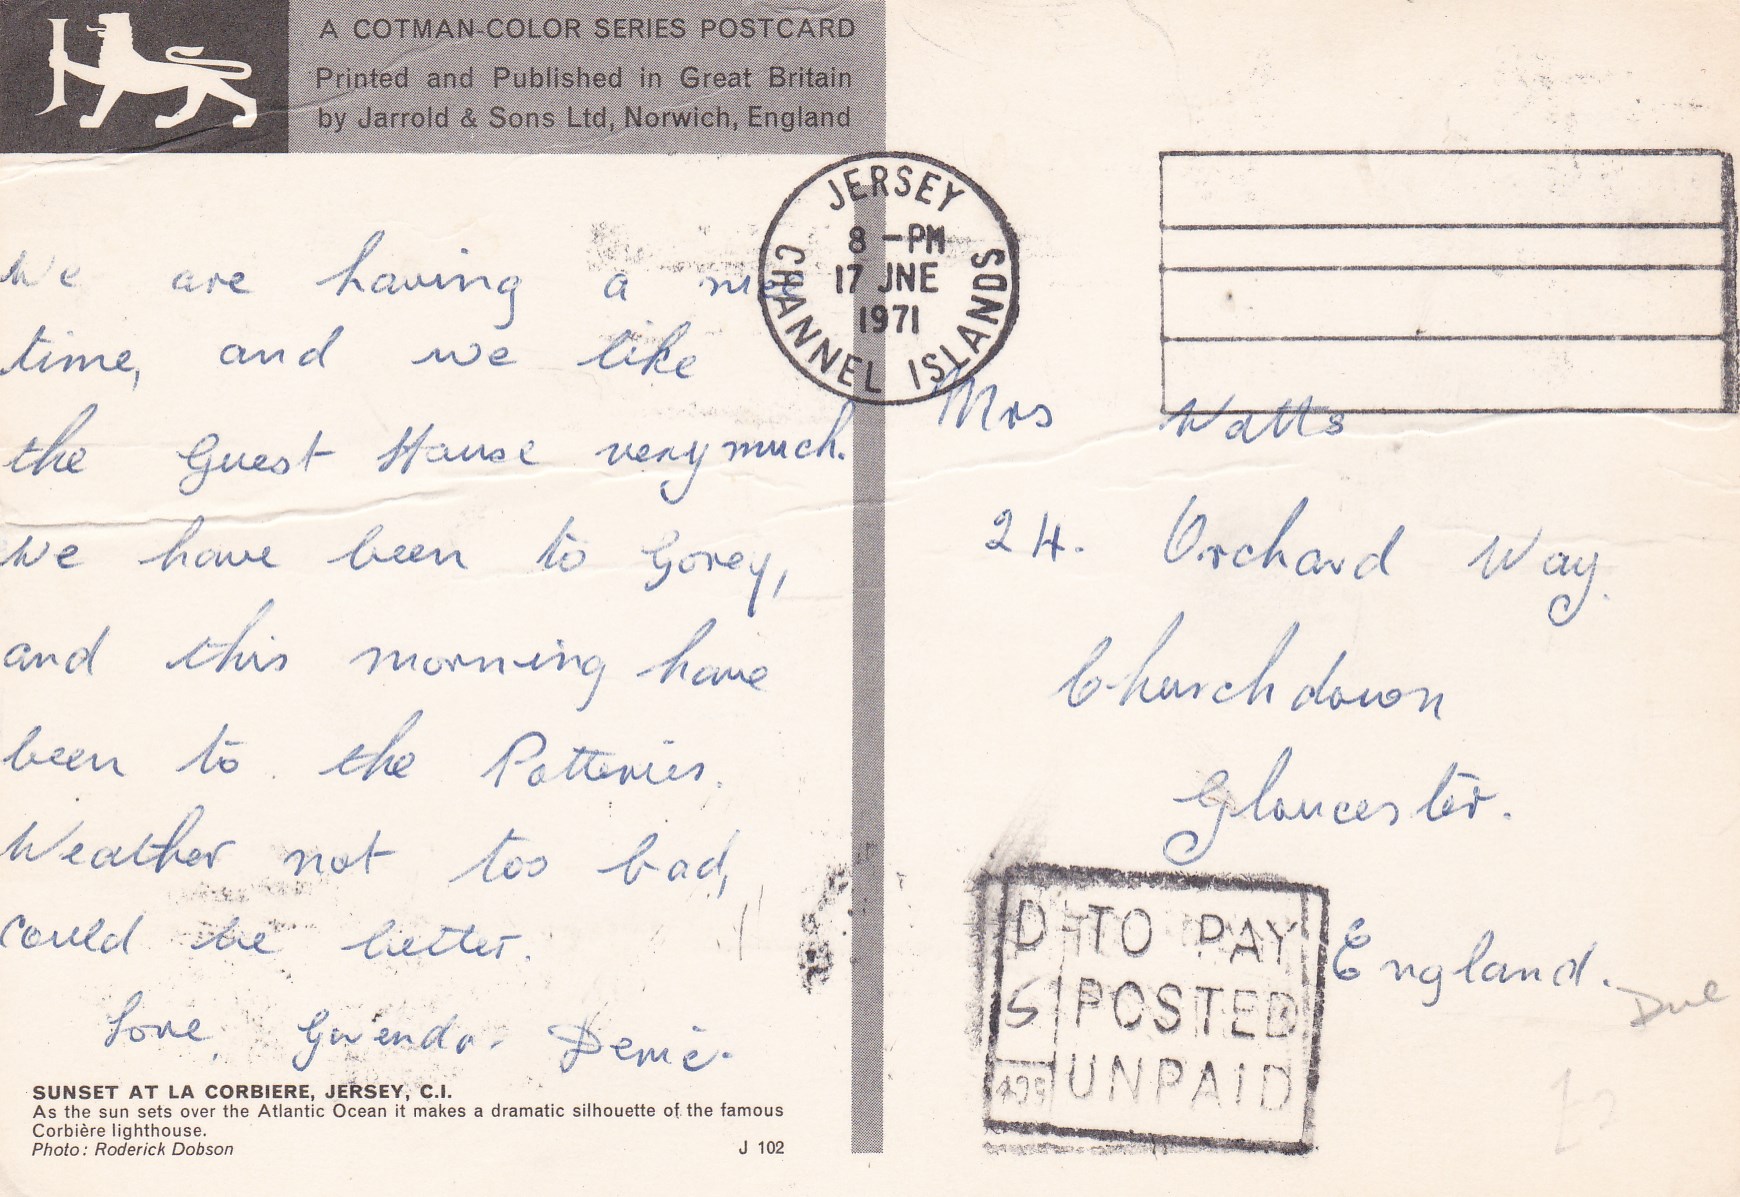 A COTMAN-COLOR SERIES POSTCARD
Printed and Published in Great Britain
by Jarrold & Sons Ltd, Norwich, England
JERSEY
8 -PM
17 JNE
1971
CHANNEL ISLANDS
We are having a nice
time, and we like
the Guest House very much.
We have been to Gorey,
and this morning have
been to the Potteries.
Weather not too bad,
could be better.
Love, Gwenda.
SUNSET AT LA CORBIERE, JERSEY, C.I.
As the sun sets over the Atlantic Ocean it makes a dramatic silhouette of the famous
Corbière lighthouse.
Photo: Roderick Dobson
J 102
Mrs Watts
24. Orchard Way.
Churchdown
Gloucester.
England.
Due
D TO PAY
5 POSTED
UNPAID